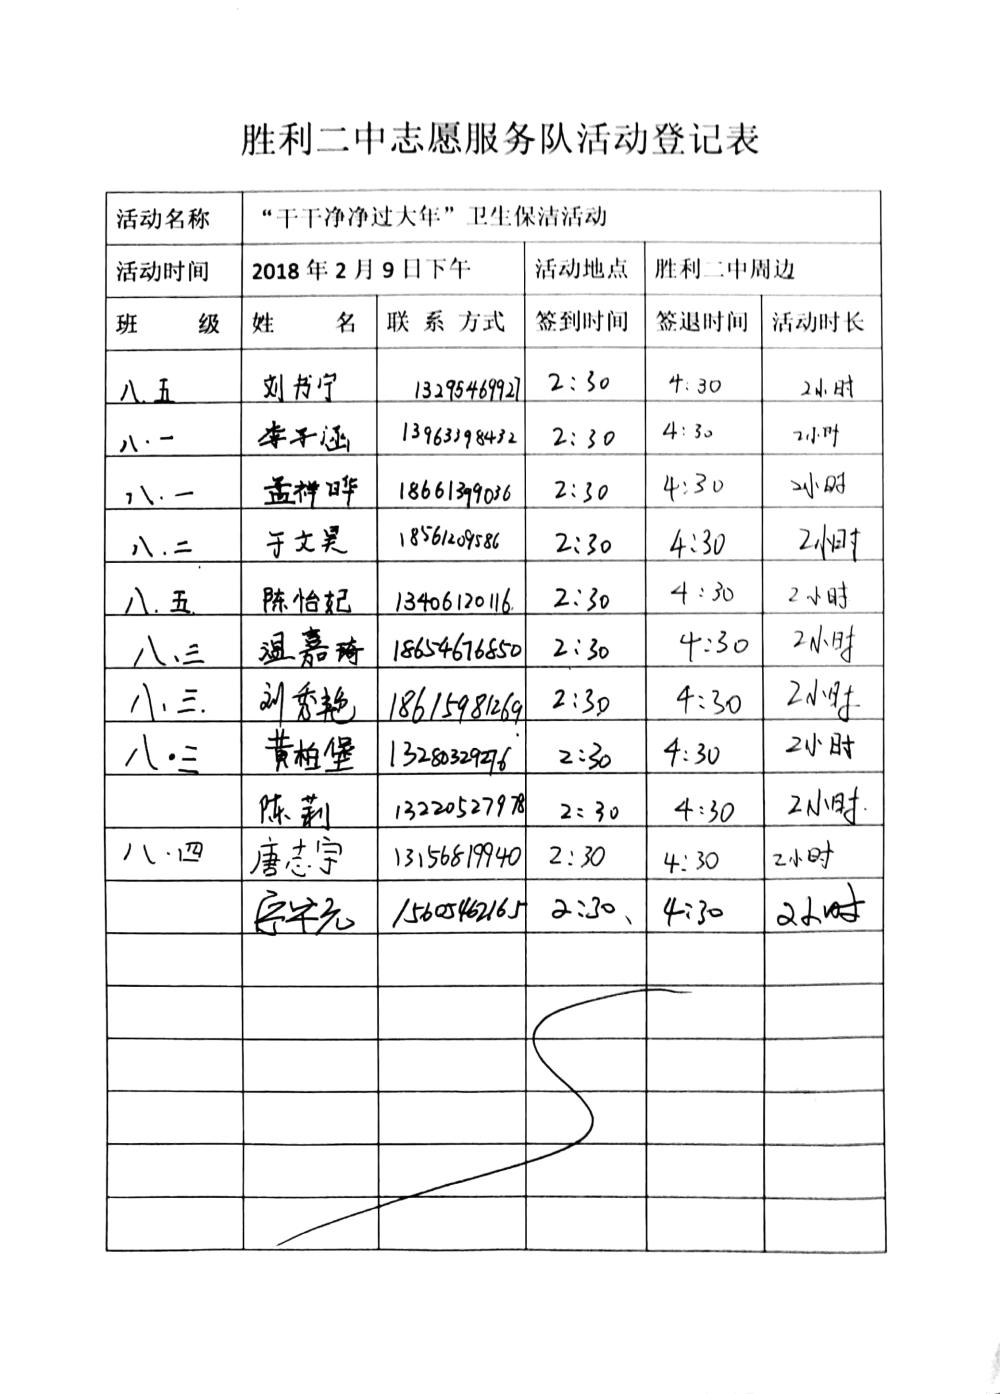 胜利二中志愿服务队活动登记表
活动名称 “干干净净过大年”卫生保洁活动
活动时间 2018 年 2 月 9 日下午 活动地点 胜利二中周边
班 级 姓 名 联 系 方式 签到时间 签退时间 活动时长
八.五 刘书宁 13295469927 2:30 4:30 2小时
八.一 李子涵 13963398432 2:30 4:30 2小时
八.一 孟祥晔 18661399036 2:30 4:30 2小时
八.二 于文昊 18561209586 2:30 4:30 2小时
八.五 陈怡妃 13406120116 2:30 4:30 2小时
八、三 温嘉琦 18654676850 2:30 4:30 2小时
八、三. 刘秀艳 18615981269 2:30 4:30 2小时
八.三 黄柏堡 13280329276 2:30 4:30 2小时
陈莉 13220527978 2:30 4:30 2小时.
八.四 唐志宇 13156819940 2:30 4:30 2小时
15605462165 2:30、 4:30 2小时